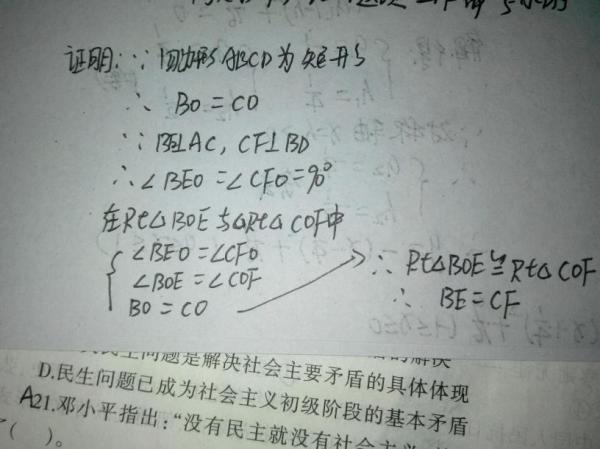 证明:∵ 四边形ABCD为矩形
∴ BO=CO
∵ BE⊥AC, CF⊥BD
∴ ∠BEO=∠CFO=90°
在Rt△BOE与△Rt△COF中
∠BEO=∠CFO
∠BOE=∠COF
BO=CO
∴ Rt△BOE≌Rt△COF
∴ BE=CF
民生问题是解决社会主要矛盾的具体体现
D.民生问题已成为社会主义初级阶段的基本矛盾
A21.邓小平指出:“没有民主就没有社会主义
( )。